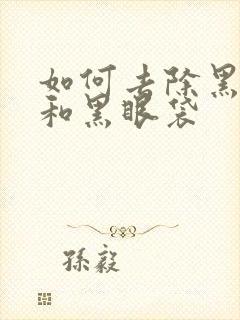 如何去除黑
和黑眼袋
孫毅